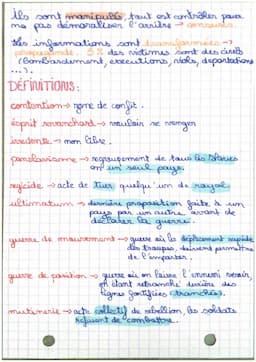 Ils sont manipulés, tout est contrôler pour
ne pas démoraliser l'arrière → censure.
Les informations sont transformées →
propagande. 5% des victimes sont des civils
(bombardement, executions, viols, deportations
...).
DÉFINITIONS:
contention → zone de conflit.
esprit revanchard → vouloir se venger
irredente → non libre.
panslavisme → regroupement de tous les slaves
en un seul pays.
régicide → acte de tuer quelqu'un de royal.
ultimatum → dernière proposition faite à un
pays par un autre, avant de
déclarer la guerre.
guerre de mouvement → guerre où le déplacement rapide
des troupes, doivent permettre
de l'emporter.
guerre de position → guerre où on laisse l'ennemi venir,
en étant retranché derrière des
lignes fortifiées (tranchées).
mutinerie → acte collectif de rebellion, les soldats
refusent de combattre.